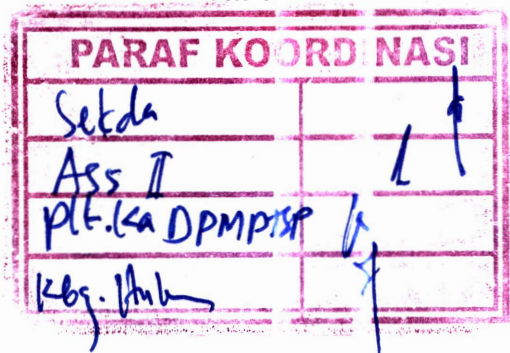 PARAF KOORDINASI
Sekda
Ass II
Plt. Ka DPMPTSP
Kbg. Hukum